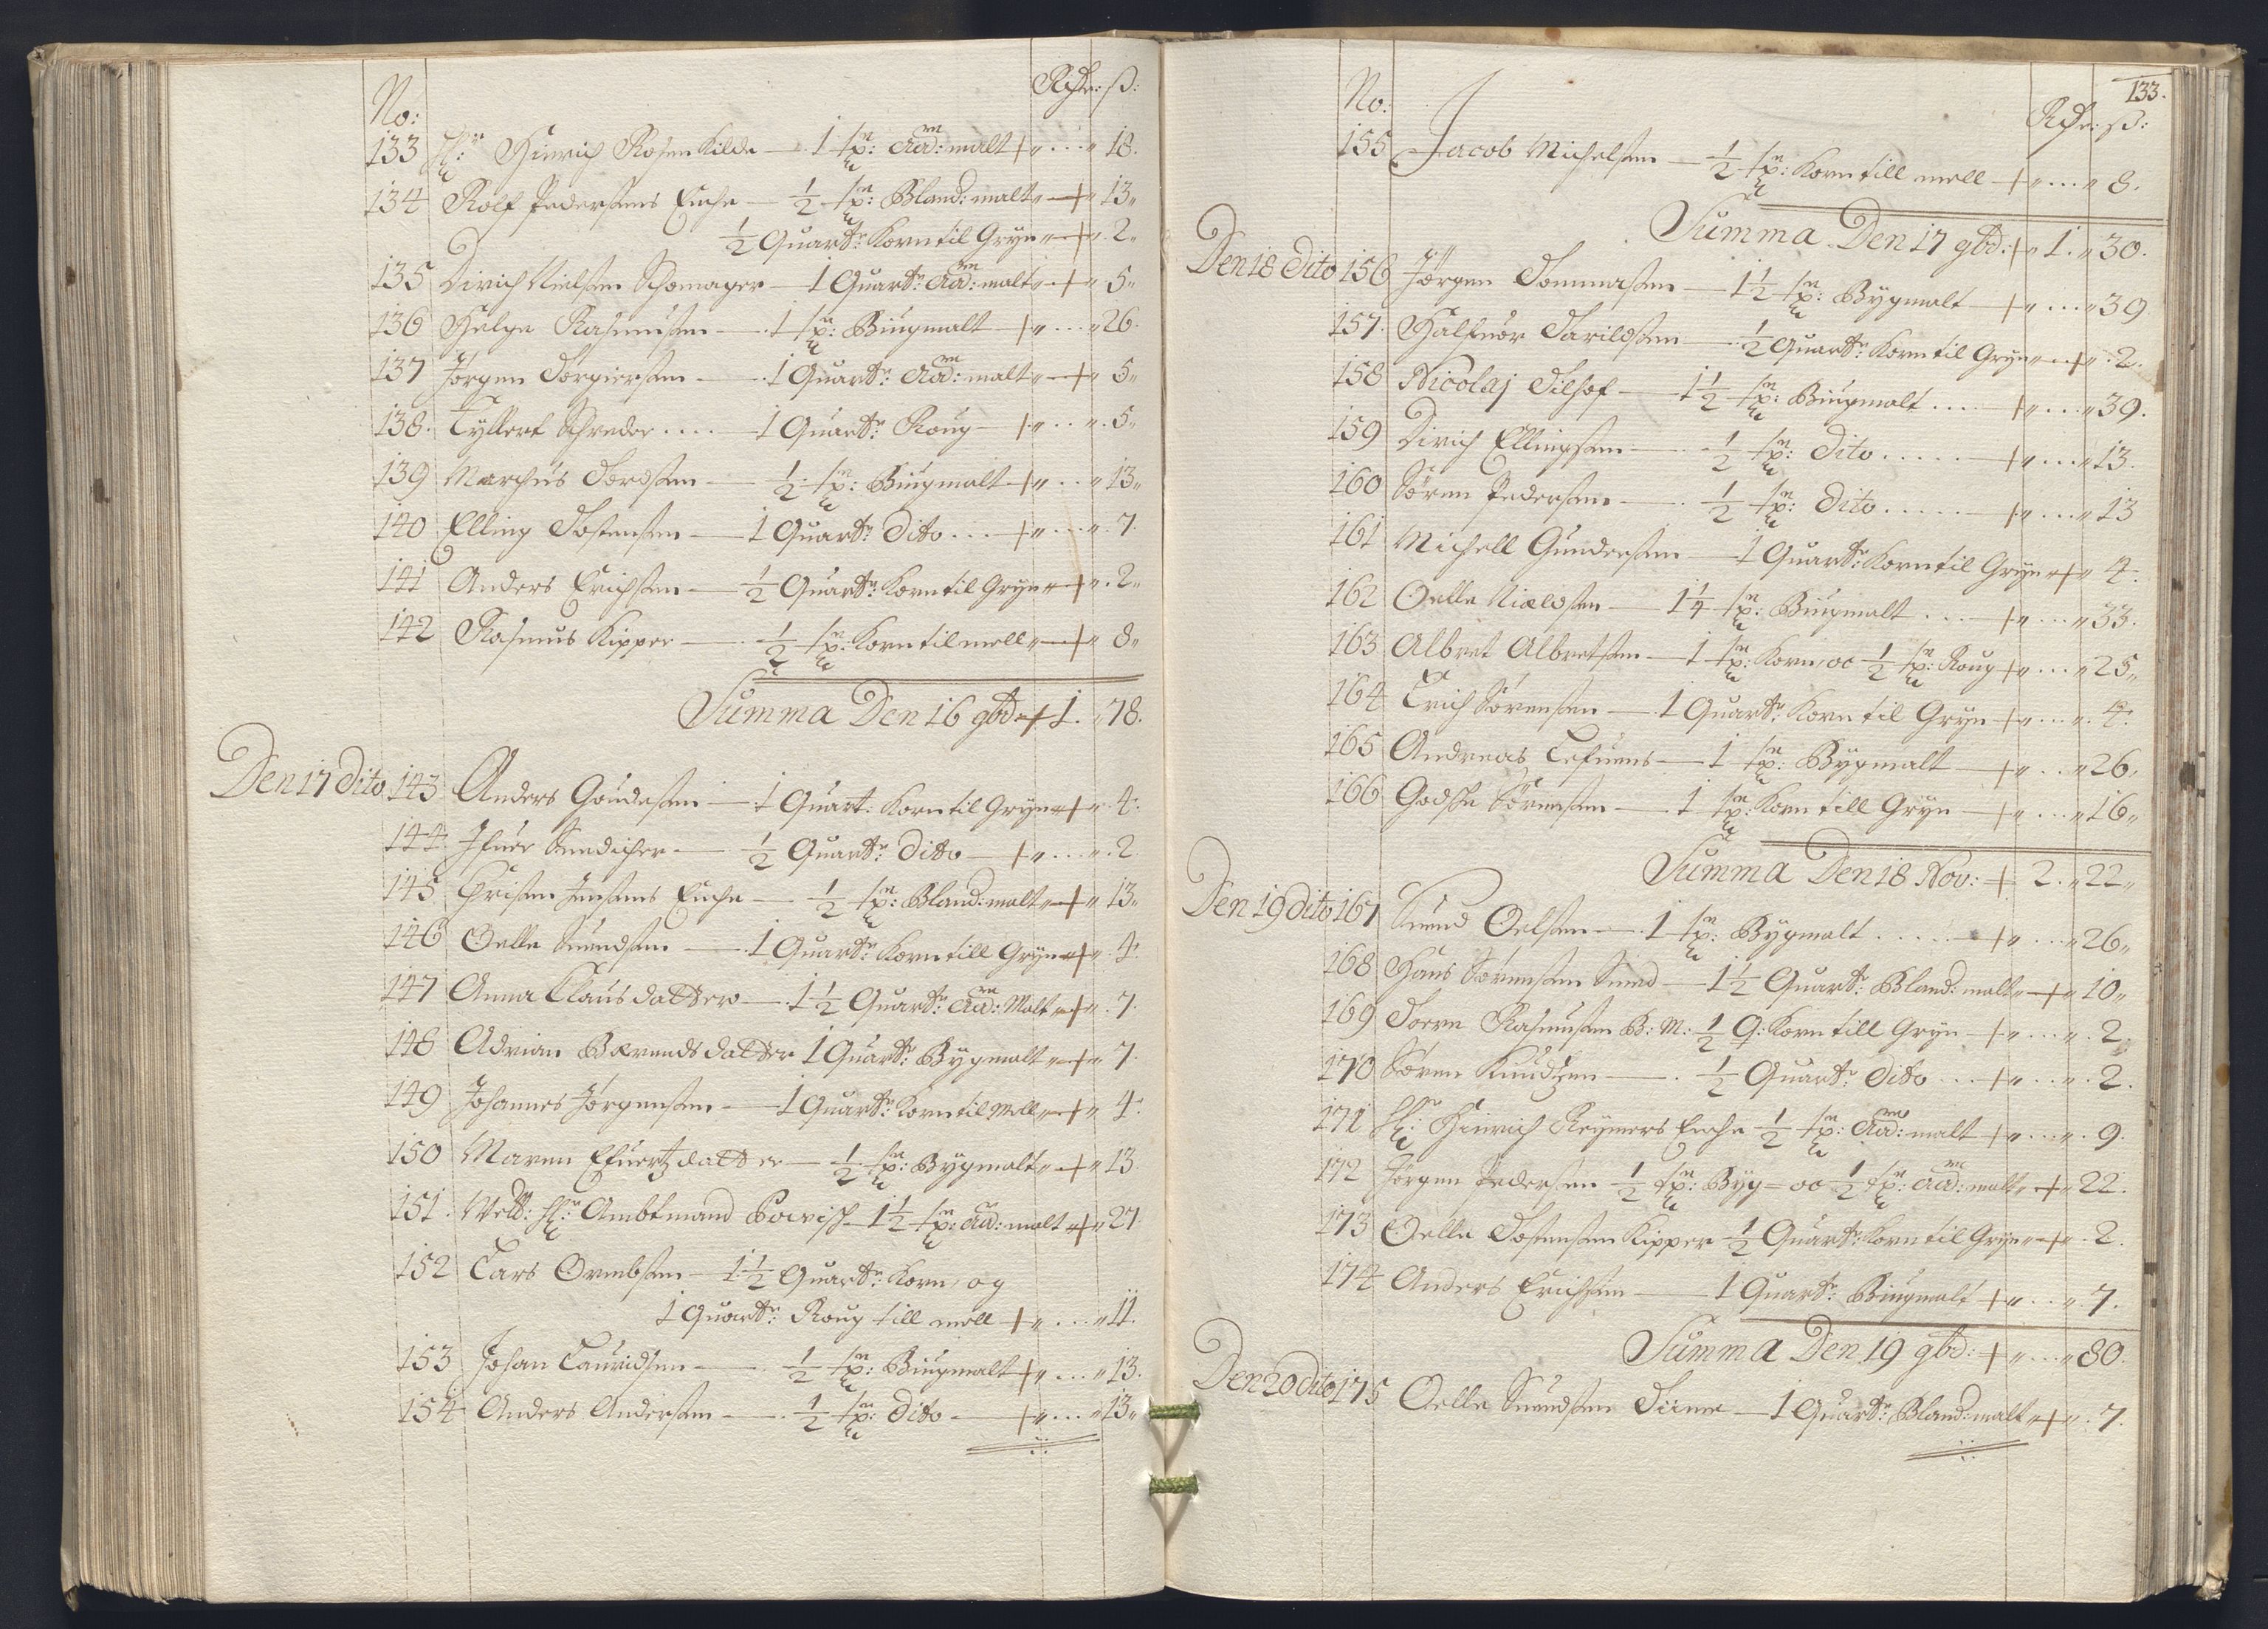 No: Rdr: ß:
133 Hr: Hinrich Rosenkilde — 1 sp: Aad: malt + „ . . . „ 18.
134 Rolf Pedersens Enche — ½ sp: Bland: malt „ + „ 13 „
½ Quartr: Korn til Gryn „ + „ . 2 „
135 Dirich Nielsen Schomager — 1 Quartr: Aad: malt „ + „ 5 „
136 Helge Rasmusen — 1 sp: Biugmalt + „ . . . „ 26.
137 Jørgen Torgiersen — 1 Quartr: Aad: malt „ + „ 5 „
138. Tyllert Schreder . . . . 1 Quartr: Roug — + „ . . „ . 5 „
139 Marchus Tordsen — ½ sp: Biugmalt + „ . . „ 13 „
140 Elling Tostensen — 1 Quartr: Dito . . . + „ . . . „ . 7.
141 Anders Erichsen — ½ Quartr: Korn til Gryn „ + „ . 2 „
142 Rasmus Kipper — ½ sp: Korn til mell „ + „ 8 „
Summa Den 16 9bd: + 1. „ 78.
Den 17 Dito 143 Anders Goudesen — 1 Quart: Korn til Gryn „ + „ . 4.
144 Ifuer Snedicher — ½ Quartr: Dito — + „ . . . „ . 2
145 Christen Jensens Enche — ½ sp: Bland: malt „ + „ 13 „
146 Oelle Suendsen — 1 Quartr: Korn till Gryn „ + „ . 4.
147 Anna Clausdatter — 1½ Quartr: Aad: Malt „ + „ . 7
148 Adrian Bærendsdatter 1 Quartr: Bygmalt „ + „ 7.
149 Johannes Jørgensen — 1 Quartr: Korn til Mell „ + „ 4.
150 Maren Efuertzdatter — ½ sp: Bygmalt „ + „ 13
151. Welb: Hr: Ambtmand Powisch — 1½ sp: Aad: malt + „ 27
152 Lars Ormbsen — 1½ Quartr: Korn, og
1 Quartr: Roug till mell + „ . . . „ 11.
153 Johan Lauridsen — ½ sp: Biugmalt + „ . . . „ 13.
154 Anders Andersen — ½ sp: Dito — + „ . . . „ 13 „
133.
No: Rdr: ß:
155 Jacob Michelsen — ½ sp: Korn till mell + „ . . . „ 8.
Summa Den 17 9bd: + „ 1. „ 30.
Den 18 Dito 156 Jørgen Tommasen — 1½ sp: Bygmalt — + „ . . . „ 39
157. Halfuor Tarildsen — ½ Quartr: Korn til Gryn „ . + „ . 2.
158 Nicolaj Tilhof — 1½ sp: Biugmalt . . . . + „ . . . „ 39.
159 Dirich Ellingsen — ½ sp: Dito . . . . . + „ . . . „ 13.
160 Søren Pedersen — ½ sp: Dito . . . . . + „ . . . „ 13
161 Michell Gundersen — 1 Quartr: Korn til Gryn „ + „ 4.
162 Oelle Nieldsen — 1¼ sp: Biugmalt . . . + „ . . . „ 33.
163 Albret Albretsen — 1 sp: Korn, oc ½ sp: Roug + „ . . . „ 25 „
164 Erich Sørensen — 1 Quartr: Korn til Gryn + „ . . . „ . 4.
165 Andreas Lefuens — 1 sp: Bygmalt — + „ . . „ 26.
166 Godske Sørensen — 1 sp: Korn till Gryn — + „ . . . „ 16 „
Summa Den 18 Nov: + 2. „ 22 „
Den 19 Dito 167 Suend Oelsen — 1 sp: Bygmalt . . . . . + „ . . . „ 26 „
168 Hans Sørensen Smed — 1½ Quartr: Bland: malt „ + „ 10 „
169 Soren Rasmusen B: M: ½ Q: Korn till Gryn — + „ . . . „ . 2.
170 Søren Knudtzen — ½ Quartr: Dito . . . + „ . . . „ . 2.
171 Hr: Hinrich Reymers Enche ½ sp: Aad: malt + „ . . . „ . 9.
172 Jørgen Pedersen ½ sp: Byg = oc ½ sp: Aad: malt „ + „ 22.
173 Oelle Tostensen Kipper ½ Quartr: Korn til Gryn „ + „ . 2.
174 Anders Erichsen — 1 Quartr: Biugmalt + „ . . . „ . 7.
Summa Den 19 9bd: + „ . . . „ 80.
Den 20 Dito 175 Oelle Suendsen Tiime — 1 Quartr: Bland: malt „ + „ . 7.